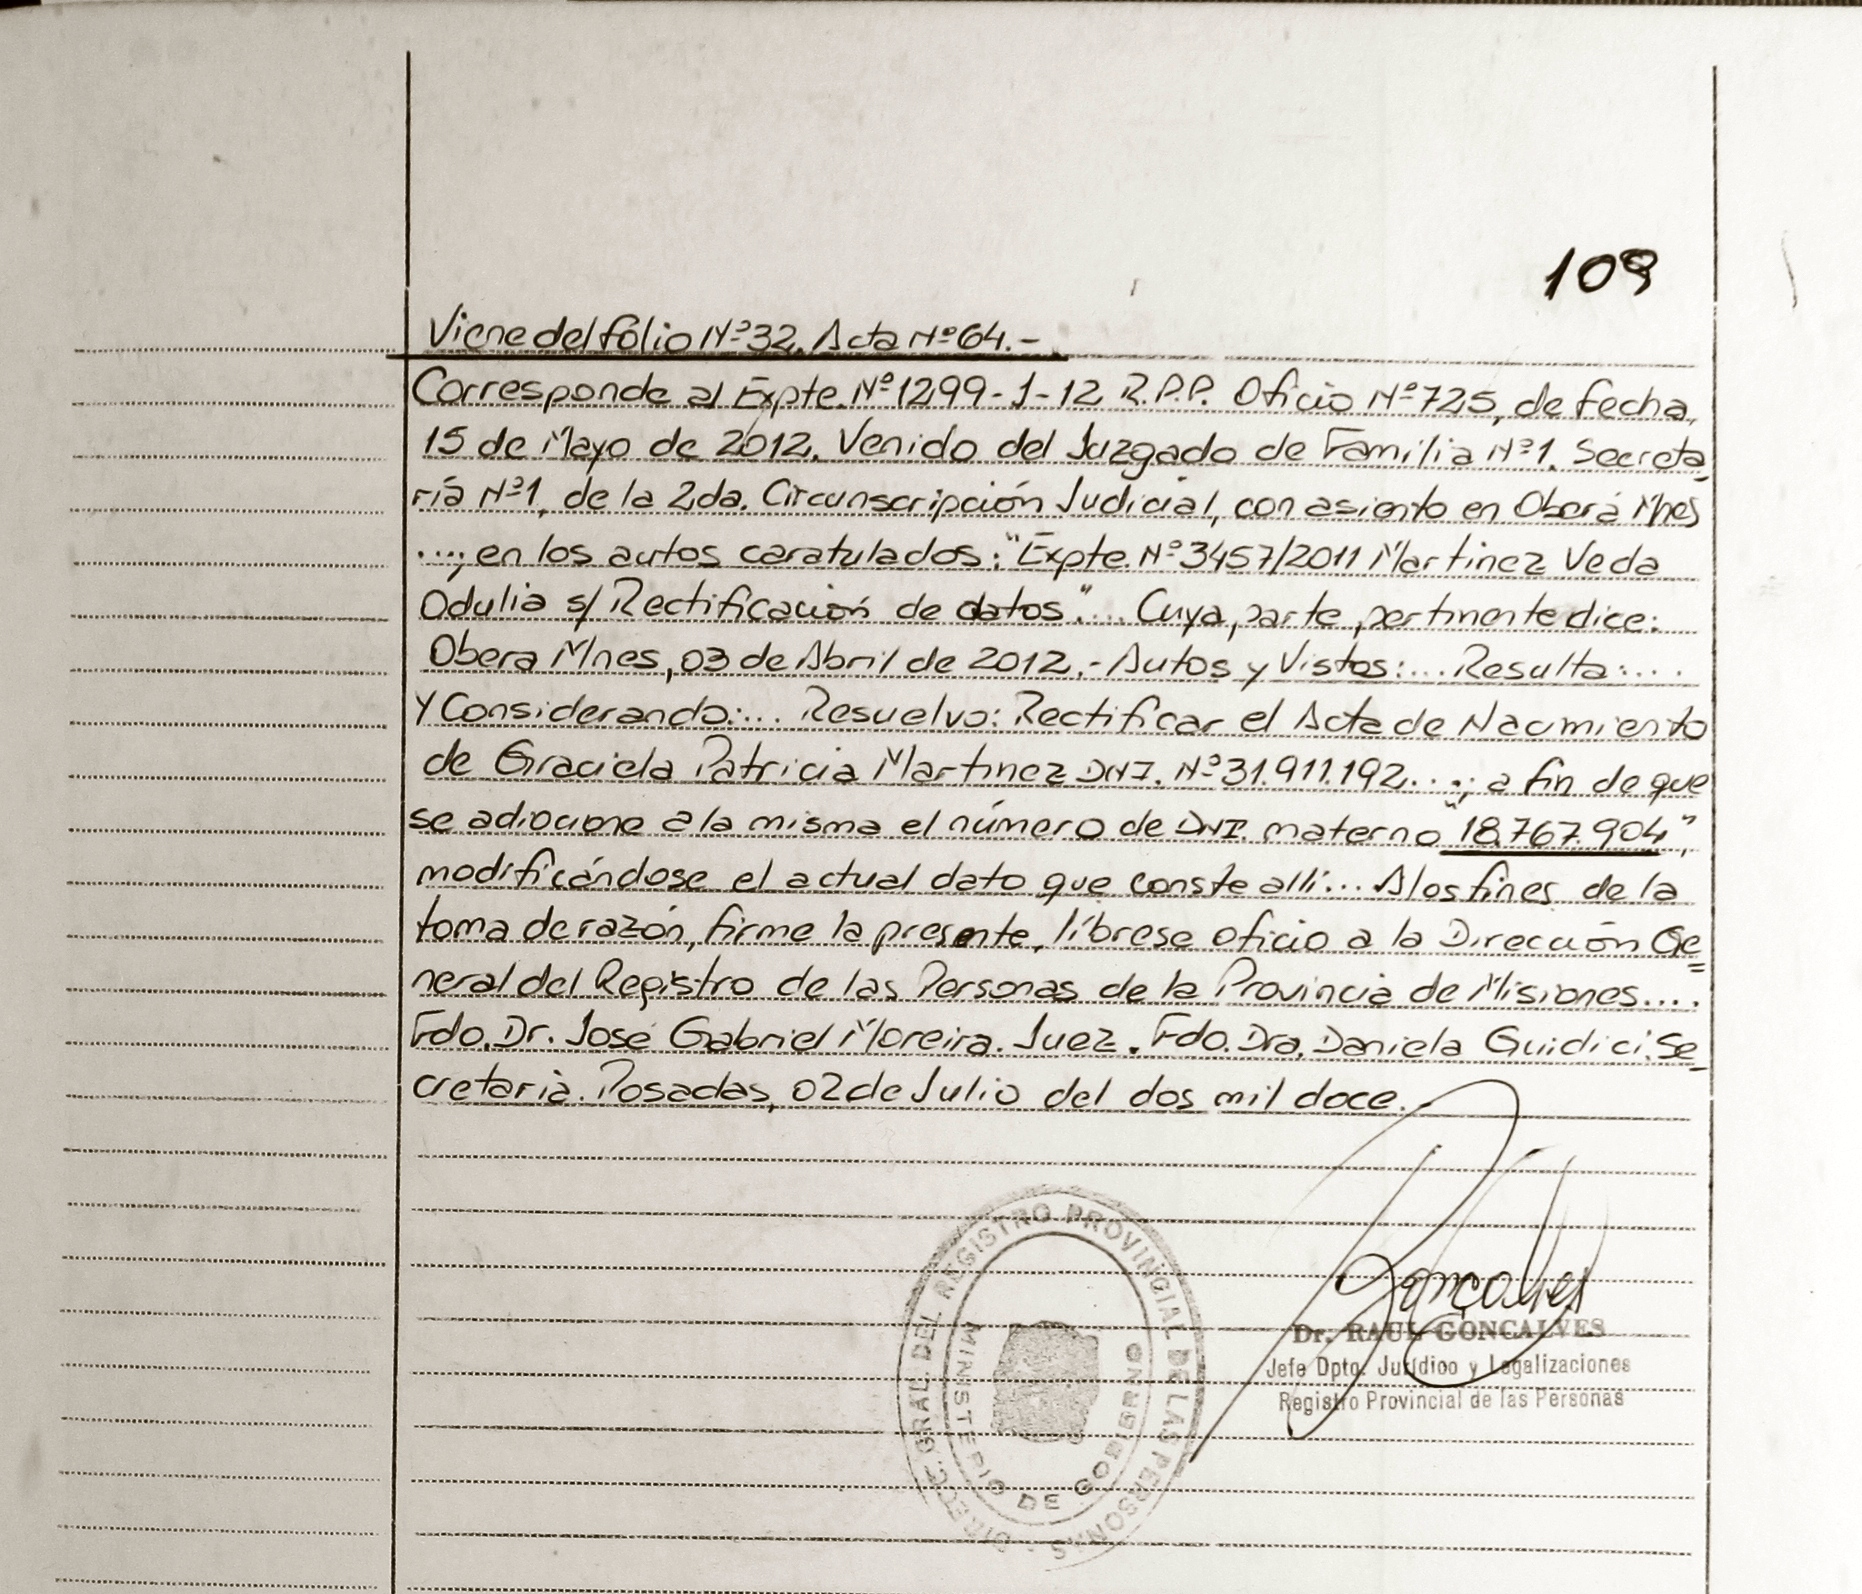 109
Viene del folio Nº32. Acta Nº64.-
Corresponde al Expte. Nº1299-J-12 R.P.P. Oficio Nº725, de fecha,
15 de Mayo de 2012. Venido del Juzgado de Familia Nº1. Secreta
ría Nº1, de la 2da. Circunscripción Judicial, con asiento en Oberá Mnes
....; en los autos caratulados: "Expte. Nº3457/2011 Martinez Veda
Odulia s/ Rectificación de datos"... Cuya parte pertinente dice:
Obera Mnes, 03 de Abril de 2012.- Autos y Vistos:... Resulta:....
Y Considerando:... Resuelvo: Rectificar el Acta de Nacimiento
de Graciela Patricia Martinez DNI. Nº31.911.192...; a fin de que
se adicione a la misma el número de DNI. materno "18.767.904",
modificándose el actual dato que conste allí... A los fines de la
toma de razón, firme la presente, líbrese oficio a la Dirección Ge
neral del Registro de las Personas de la Provincia de Misiones....
Fdo. Dr. José Gabriel Moreira. Juez. Fdo. Dra. Daniela Guidici. Se
cretaria. Posadas, 02 de Julio del dos mil doce.
DIRECC. GRAL. DEL REGISTRO PROVINCIAL DE LAS PERSONAS
MINISTERIO DE GOBIERNO
Goncalves
Dr. RAUL GONCALVES
Jefe Dpto. Jurídico y Legalizaciones
Registro Provincial de las Personas